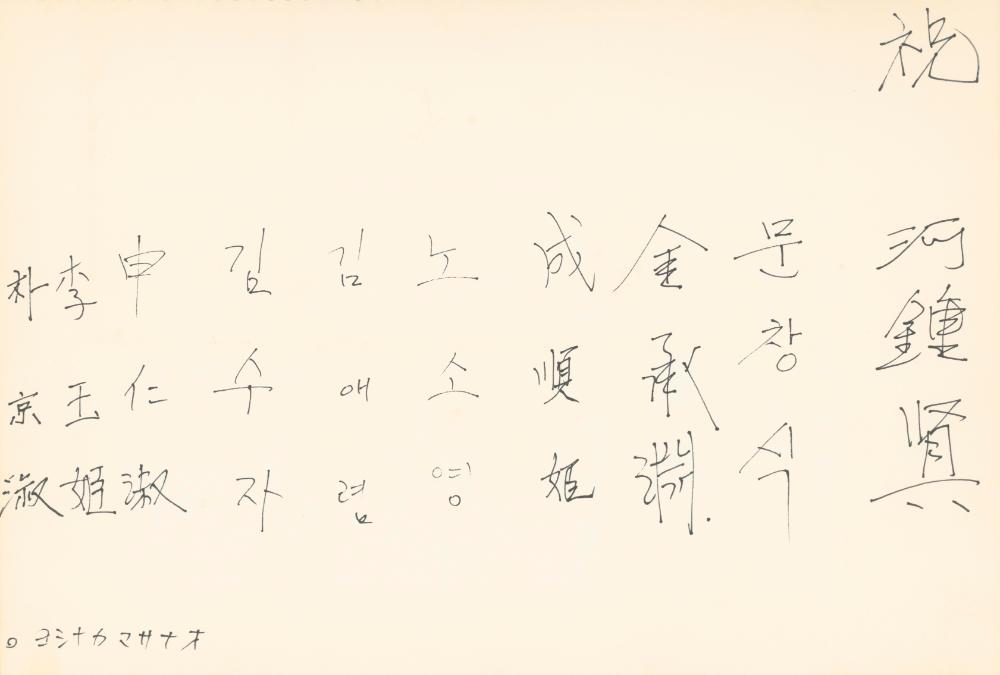 祝
河鍾賢
문창식
金承淵.
成順姬
노소영
김애렴
김수자
申仁淑
李玉姬
朴京淑
ヨシナカマサナオ